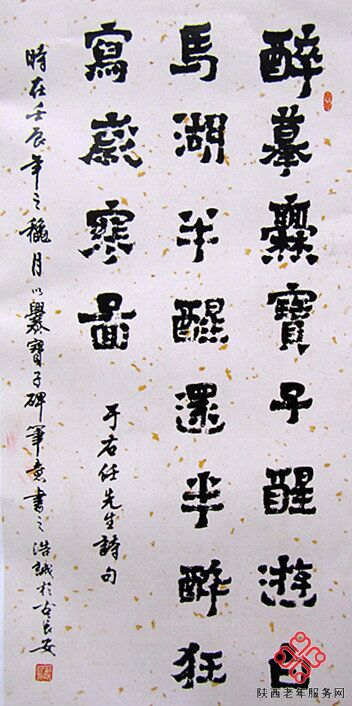 醉摹爨寶子醒游白
馬湖半醒還半醉狂
寫歲寒圖
于右任先生詩句
時在壬辰年之穐月以爨寶子碑筆意書之浩誠於古長安
陕西老年服务网